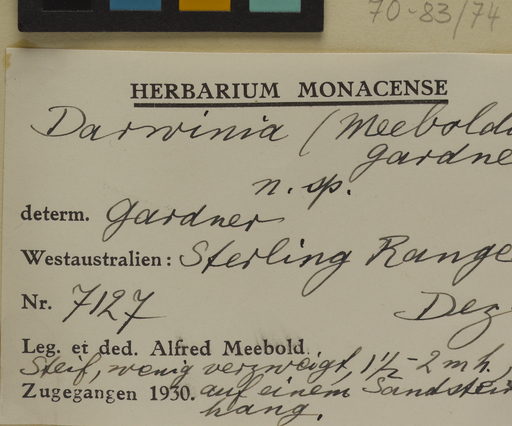 70-83/74
HERBARIUM MONACENSE
Darwinia (Meeboldi
Gardne
n. sp.
determ. Gardner
Westaustralien: Sterling Range
Nr. 7127 Dez
Leg. et ded. Alfred Meebold.
Steif, wenig verzweigt, 1½-2 m h,
Zugegangen 1930. auf einem Sandstein
hang.